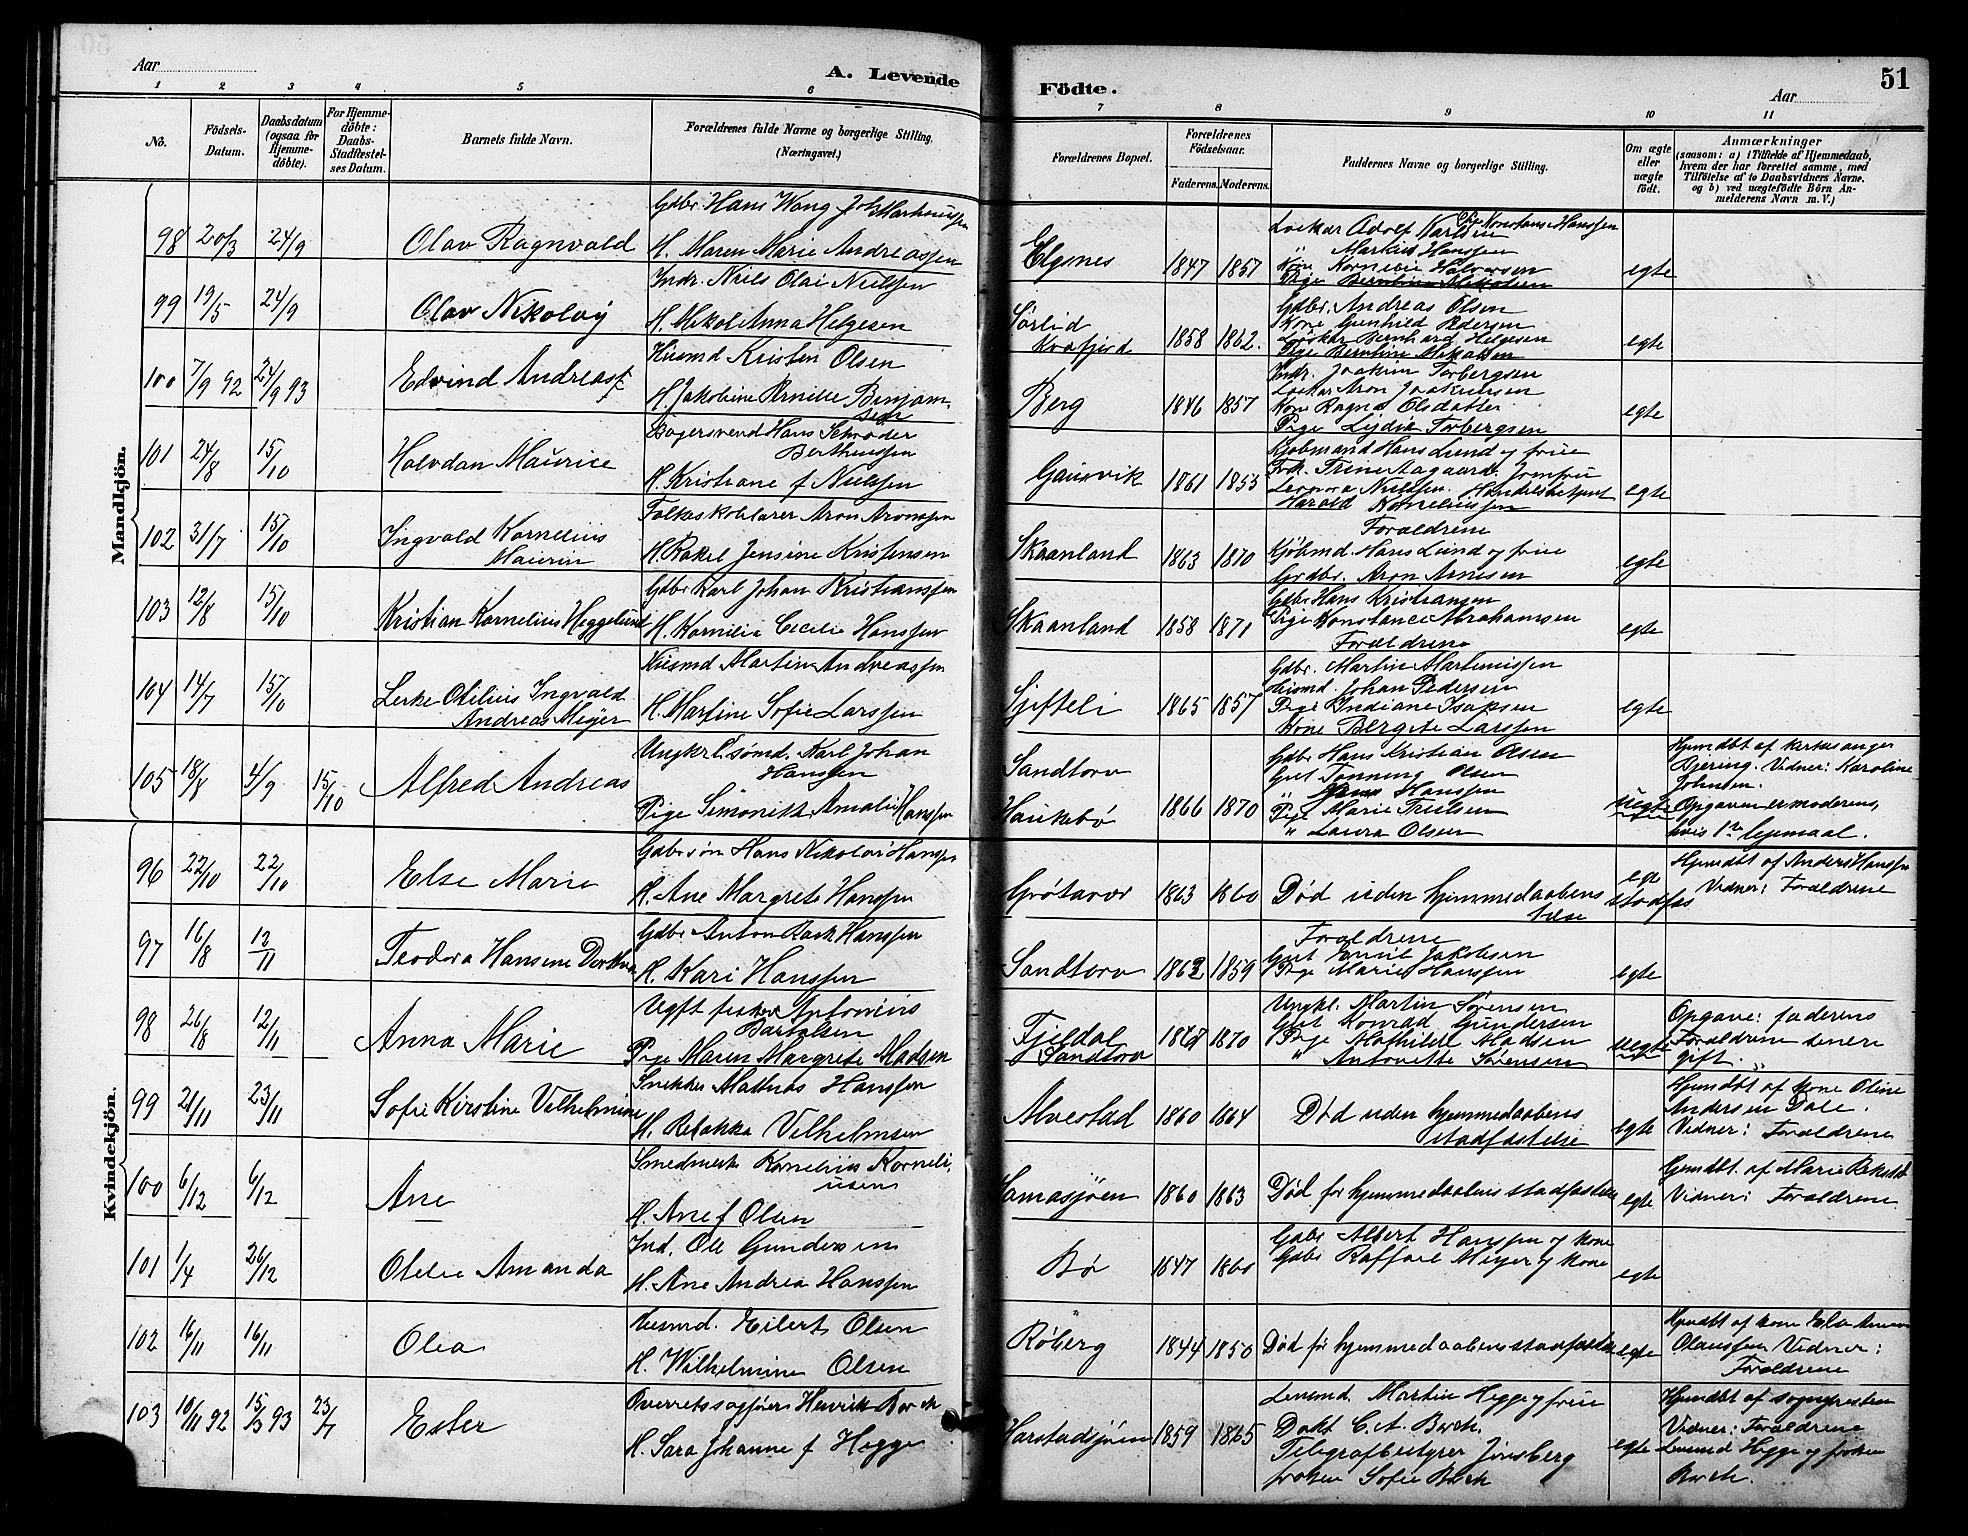 51
Aar
A. Levende
Födte.
Aar
1 2 3 4 5 6 7 8 9 10 11
No.
Födsels-
Datum.
Daabsdatum
(ogsaa for
Hjemme-
döbte).
For Hjemme-
döbte:
Daabs-
Stadfæstel-
ses Datum.
Barnets fulde Navn.
Forældrenes fulde Navne og borgerlige Stilling.
(Næringsvei.)
Forældrenes Bopæl.
Forældrenes
Födselsaar.
Faderens.
Moderens.
Faddernes Navne og borgerlige Stilling.
Om ægte
eller
uægte
födt.
Anmærkninger
(saasom: a) i Tilfælde af Hjemmedaab,
hvem der har forrettet samme, med
Tilföielse af to Daabsvidners Navne,
og b) ved uægtefödte Börn An-
melderens Navn m. V.)
Mandkjön.
98 20/3 24/9 Olav Ragnvald
Gdbr. Hans Wang Joh Markussen
H. Maren Marie Andreassen
Elgsnes 1847 1857
Loskar Adolf Karlsen Pige Konstanse Hanssen
" Markus Hanssen
Kone Halvorsen
Pige
egte
99 19/5 24/9 Olav Nikolay
Indr. Niels Olai Nielssen
H. Nikol. Anna Helgesen
Sørlid
Kvæfjord 1858 1862.
Gdbr. Andreas Olsen
Kone Gunhild Pedersen
Loskar Bernhard Helgesen
Pige
egte
100 7/9 92 24/9 93 Edvind Andreas
Husmd Kristen Olsen
H. Jakobine Pernille Benjam-
sen
Berg 1846 1857
Indr. Joakim Torbergsen
Loskar Aron Joakimsen
Kone Ragna Olsdatter
Pige Lydik Torbergsen
egte
101 24/8 15/10 Halvdan Maurice
Bagersvend Hans Schrøder
Berthinssen
H. Kristiane f Nielssen
Gausvik 1861 1853
Kjøbmand Hans Lund og frue
Frk. Trine Aagaard. Jomfru
Leonora Nielssen. Handelsbetjent
Harald Kornelinssen
egte
102 31/7 15/10 Ingvald Kornelius
Maurin
Folkeskolelærer Aron Aronssen
H. Rakel Jensine Kristensen
Skaanland 1863 1870
Foraldrene
Kjöbmd. Hans Lund og frue
Grdbr. Aron Arnesen
egte
103 12/8 15/10 Kristian Kornelius Heggelund
Gdbr Karl Johan Kristianssen
H. Kornelia Cecilie Hanssen
Skaanland 1858 1871
Gdbr Hans Kristiansen
Pige Konstance Abrahamsen
Foraldrene
egte
104 14/7 15/10 Lerke Otelius Ingvald
Andreas Meyer
Husmd Martin Andreassen
H. Martine Sofie Larssen
1865 1857
Gdbr. Martin Martinussen
Husmd. Johan Pedersen
Pige Indiane Isaksen
Kone Bergite Larssen
egte
105 18/8 4/9 15/10 Alfred Andreas
Ungkrl. sømd. Karl Johan
Hanssen
Pige Simonikke Amalie Hanssen
Sandtorv
Haukebø 1866 1870
Gdbr Hans Kristian Olsen
Gut Tønning Olsen
" Hanssen
Pige Marie Trulsen
" Laura Olsen
uegte
Hjemdbt af kirkesanger
Djering. Vidner: Karoline
Johnsen.
Opgaven er moderens,
hvis 1te lejemaal.
Kvindekjön.
96 22/10 22/10 Else Marie
Gdbr søn Hans Nikolai Hanssen
H. Ane Margrete Hanssen
Grøtavær 1863 1860
Død uden hjemmedaabens stadfæs
telse
egte
Hjemdbt af Anders Hanssen
Vidner: Foraldrene
97 16/8 12/11 Teodora Hansine Dorthea
Gdbr Anton Rask Hanssen
H. Kari Hanssen
Sandtorv 1862 1859
Foraldrene
Gut Emil Jakobsen
Pige Marie Hanssen
egte
98 26/8 12/11 Anna Marie
Ugft fisker Antonius
Bartolsen
Pige Maren Margrete Madsen
Fjeldal
Sandtorv 1870
Ungkl. Martin Sørensen
Gut Konrad Gundersen
Pige Mathilde Madsen
" Antonette Sørensen
uegte
Opgave: faderens
Foraldrene senere
gift.
99 21/11 23/11 Sofie Kirstine Vilhelmine
Snekker Mathias Hanssen
H. Rebekka Vilhelmsen
Alvestad 1860 1864
Død uden hjemmedaabens
stadfæstelse
egte
Hjemdbt af kone Oline
Andersen Dale.
Vidner: Foraldrene
100 6/12 6/12 Ane
Smedmester Kornelius Korneli-
usen
H. Ane f Olsen
Samasjøen 1860 1863
Død før hjemmedaabens stadfæstelse
egte
Hjemdbt. af Marie
Vidner: Foraldrene
101 1/4 26/12 Otelie Amanda
Ind. Ole Gundersen
H. Ane Andrea Hanssen
Bø 1847 1860
Gdbr Albert Hanssen og kone
Gdbr Raffael Meyer og kone
egte
102 16/11 16/11 Olea
Husmd. Eilert Olsen
H. Wilhelmine Olsen
Røberg 1844 1850
Død før hjemmedaabens stadfæstelse
egte
Hjemdbt af kone
Olaussen Vidner:
Foraldrene
103 10/11 92 15/3 93 23/7 Ester
Overretssagfører Henrik Borch
H. Sara Johanne f Hegge
Harstadsjøen 1859 1865
Lensmd. Martin Hegge og frue
Dokt C. A. Borch.
Telegrafbestyrer Jünsberg
frøken Sofie Borch
egte
Hjemdbt af sognepresten
Vidner: Foraldrene
Lensmd Hegge og frøken
Borch.